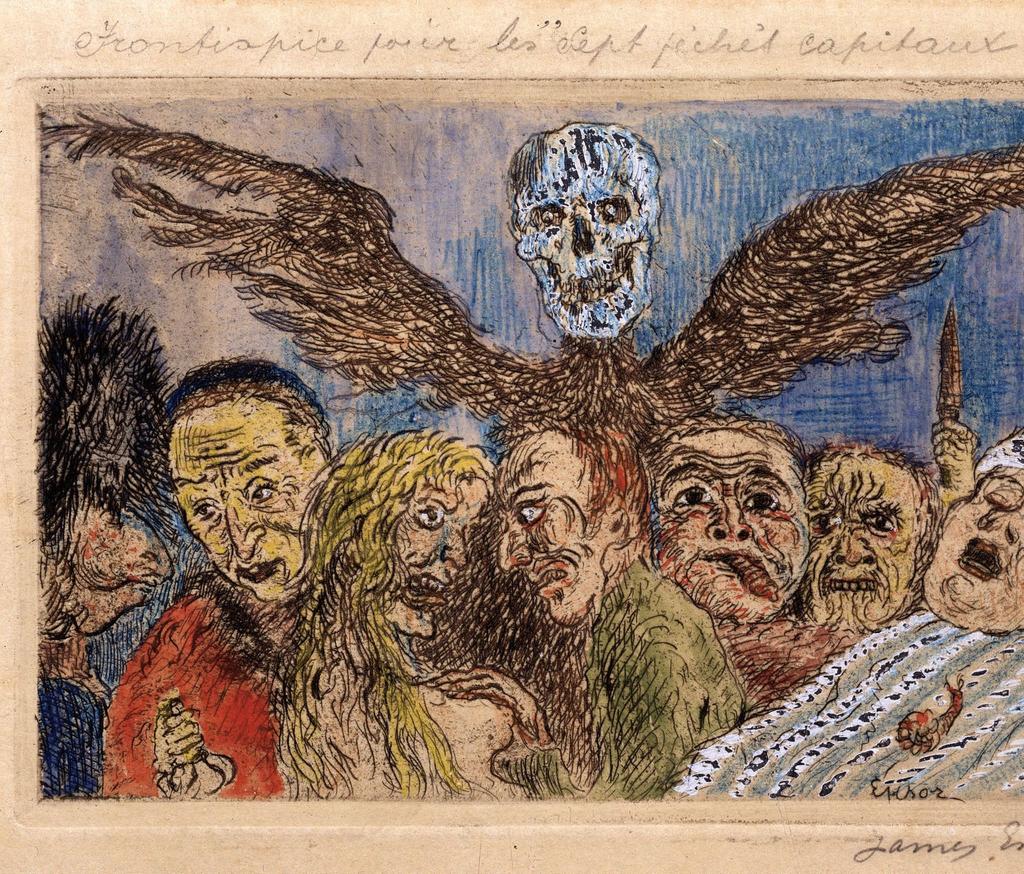 Frontispice pour les "Sept péchés capitaux
Ensor
James En